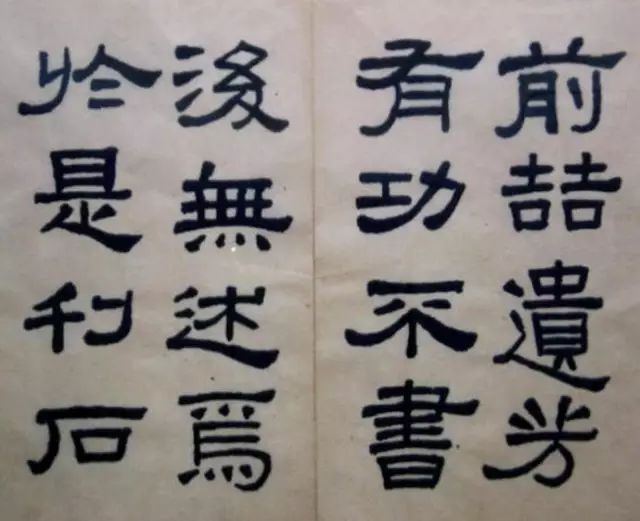 前喆遺芳
有功不書
後無述焉
於是利石